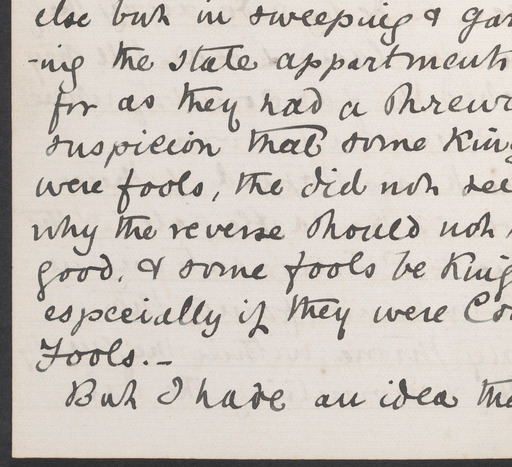 else but in sweeping & gar
-ing the state appartments
for as they had a shrew
suspicion that some King
were fools, the did not see
why the reverse should not
good, & some fools be King
especially if they were Co
Fools.-
But I have an idea tha